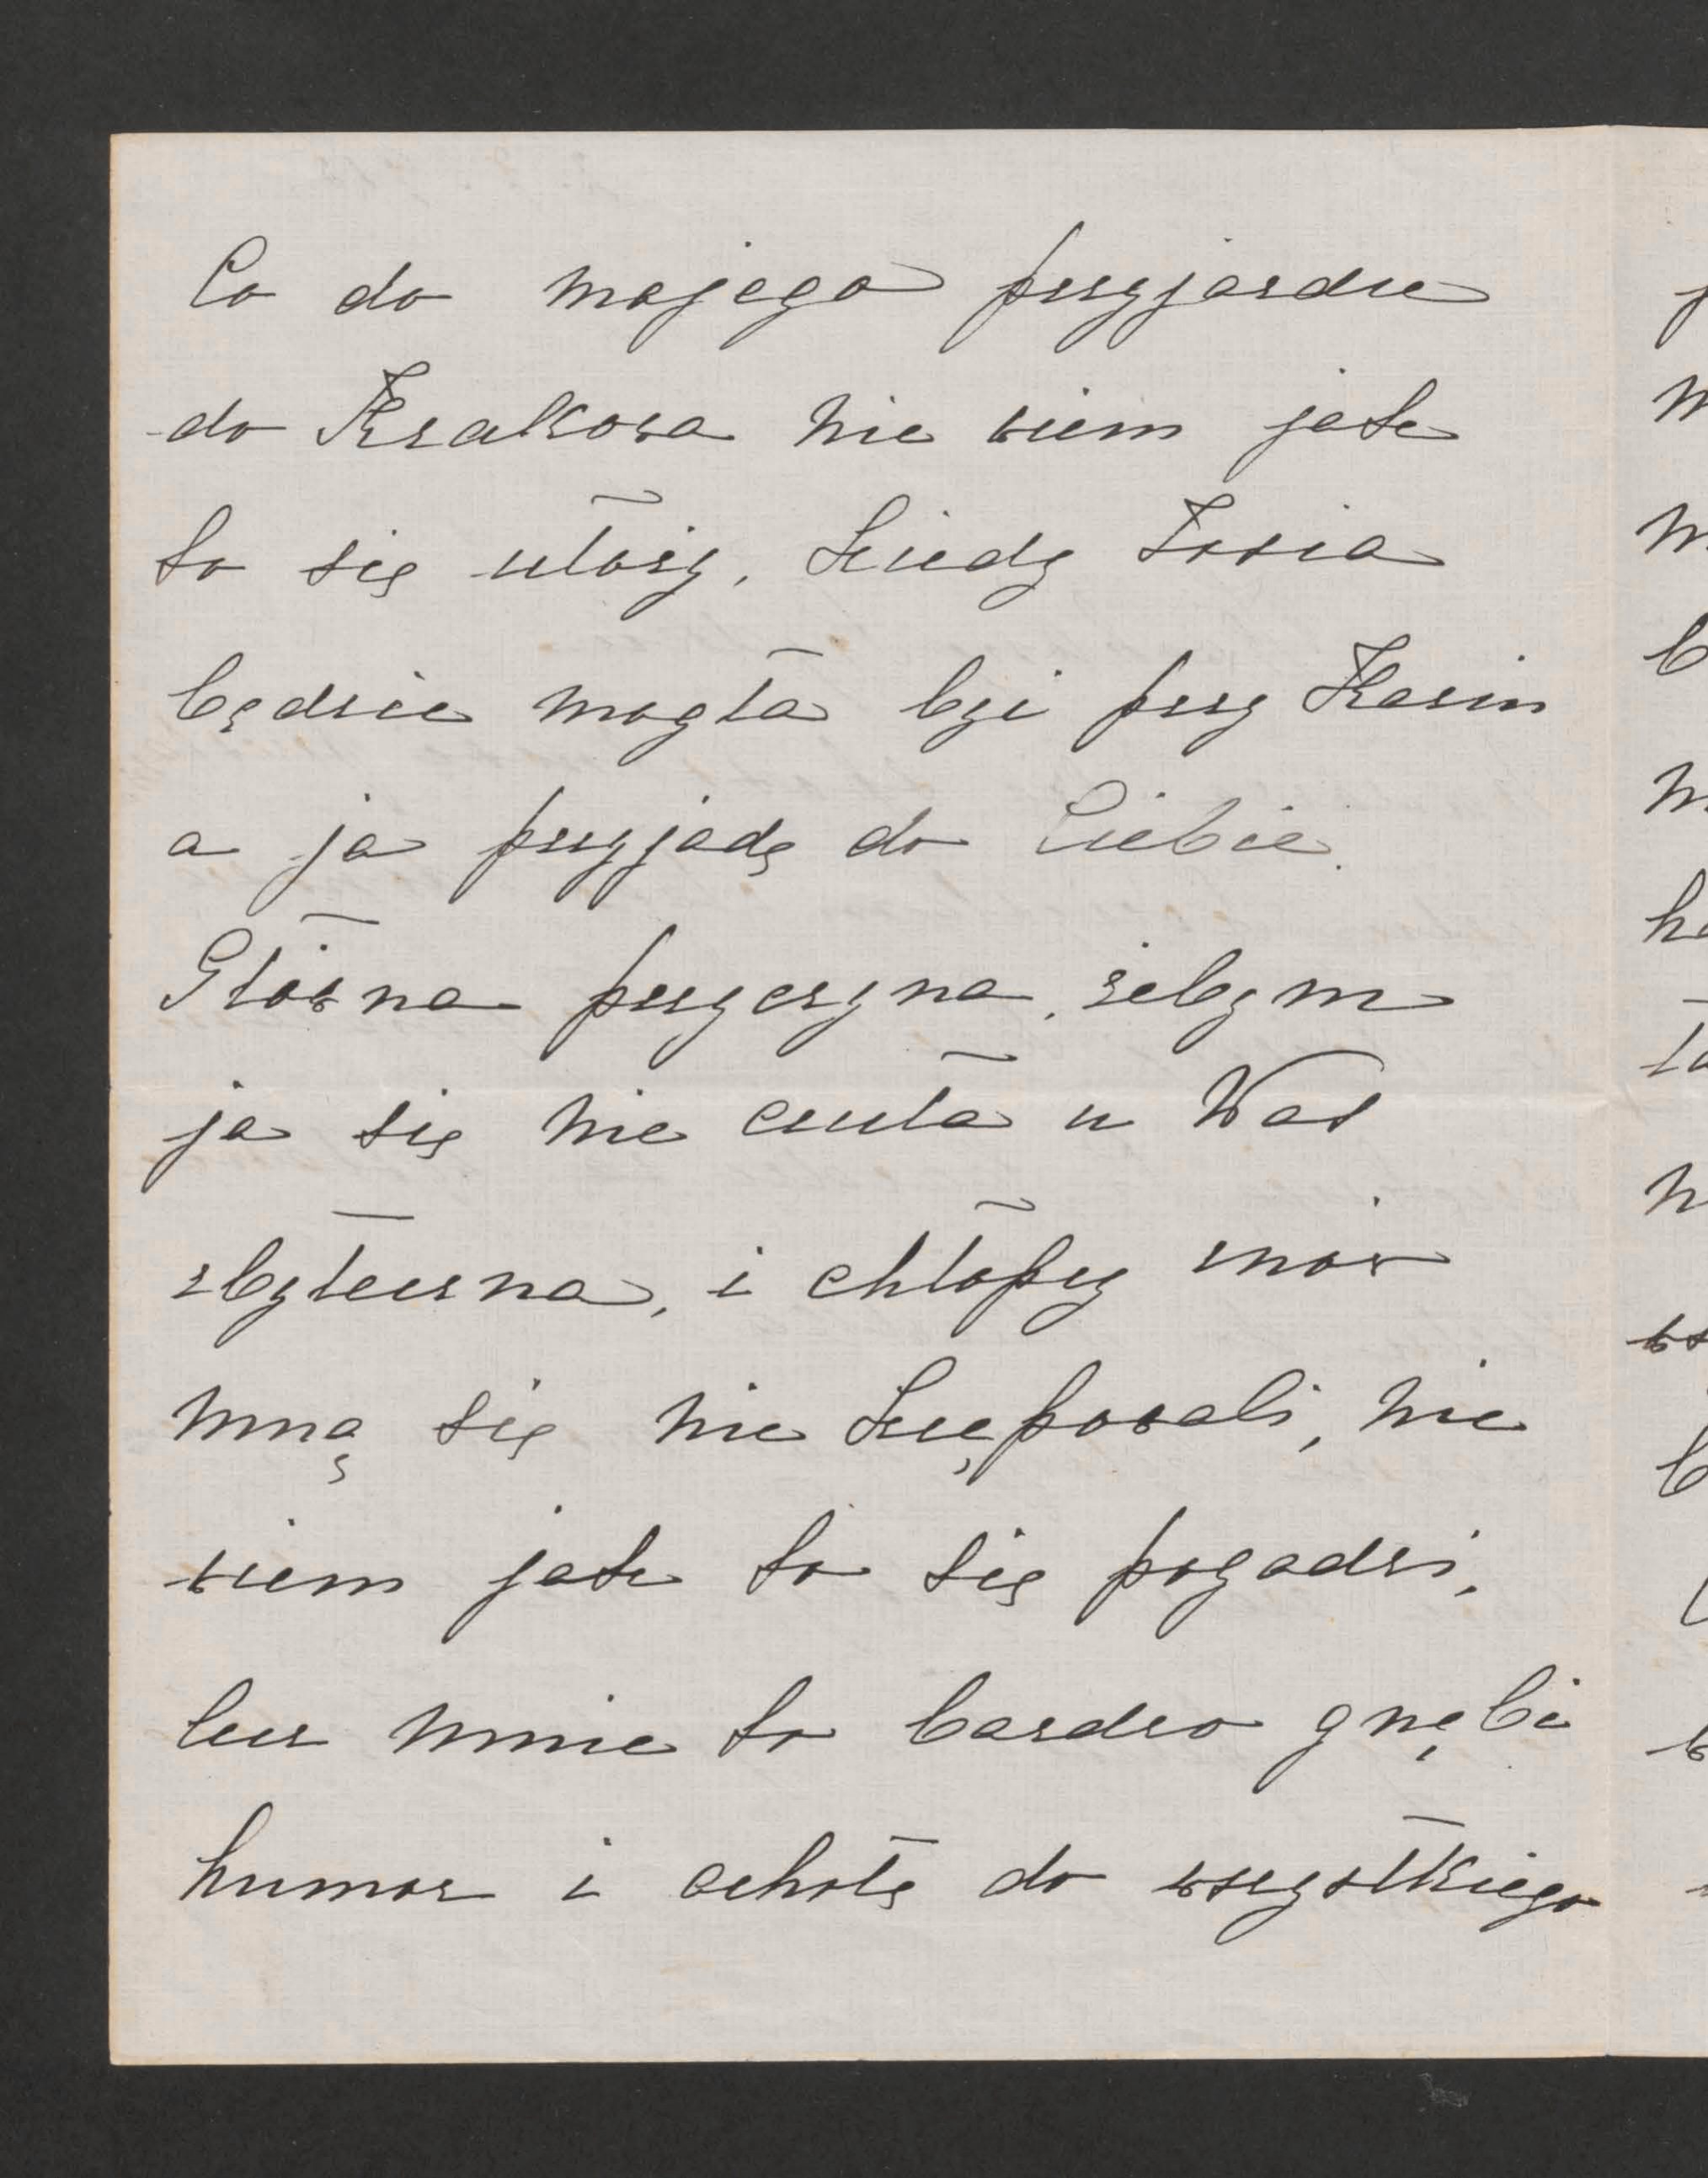 Co do mojego przyjazdu
do Krakowa nie wiem jak
to się ułoży, kiedy Zosia
będzie mogła być przy Kaziu
a ja przyjadę do Ciebie.
Główna przyczyna, żebym
ja się nie czuła u Was
zbyteczna, i chłopcy mną
mną się nie krępowali, nie
wiem jak to się pogodzi,
lecz mnie to bardzo gnębi
humor i ochotę do wszystkiego